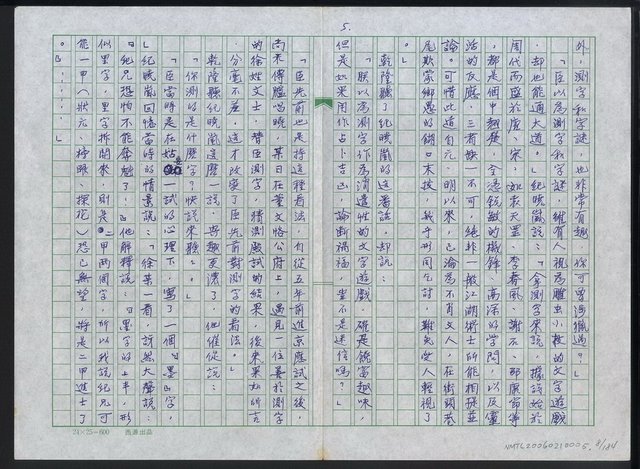 5.
外，測字和字謎，也非常有趣，你可曾涉獵過？」
「臣以為測字和字謎，雖有人視為雕虫小技的文字遊戲
，却也能通大道。」紀曉嵐說：「拿測字來說，據說始於
周代而盛於唐、宋，如袁天罡、李春風、謝石、邵康節等
，都是個中翹楚，全憑銳敏的機鋒、高深的學問，以及靈
活的反應，三者缺一不可，絕非一般江湖術士所能相提並
論。可惜此道自元、明以來，已淪為不肖文人，在街頭巷
尾欺蒙鄉愚的餬口末技，幾乎形同乞討，難免受人輕視了
。」
乾隆聽了紀曉嵐的這番話，却說：
「朕以為測字作為消遣性的文字遊戲，確是饒富趣味，
但是如果用作占卜吉凶，論斷禍福，豈不是迷信嗎？」
「臣先前也是持這種看法，自從五年前進京應試之後，
尚未傳臚唱曉，某日在董文恪公府上，遇見一位善於測字
的徐姓文士，替臣測字，猜測殿試的結果，後來果如所言
，分毫不差，這才改變了臣先前對測字的看法。」
乾隆聽紀曉嵐這麼一說，興趣更濃了，他催促說：
「你測的是什麼字？快說來聽。」
「臣當時是在姑一試的心理下，寫了一個『墨』字，
」紀曉嵐回憶當時的情景說：「徐某一看，訝然大聲說：
『紀兄恐怕不能奪魁了。』他解釋說：『墨字的上半，形
似里字，里字拆開來，則是二甲兩個字，所以我說紀兄可
能一甲（狀元、榜眼、探花）恐已無望，將是二甲進士了
。』……」
24×25=600
NMTL20060210005. 8/184